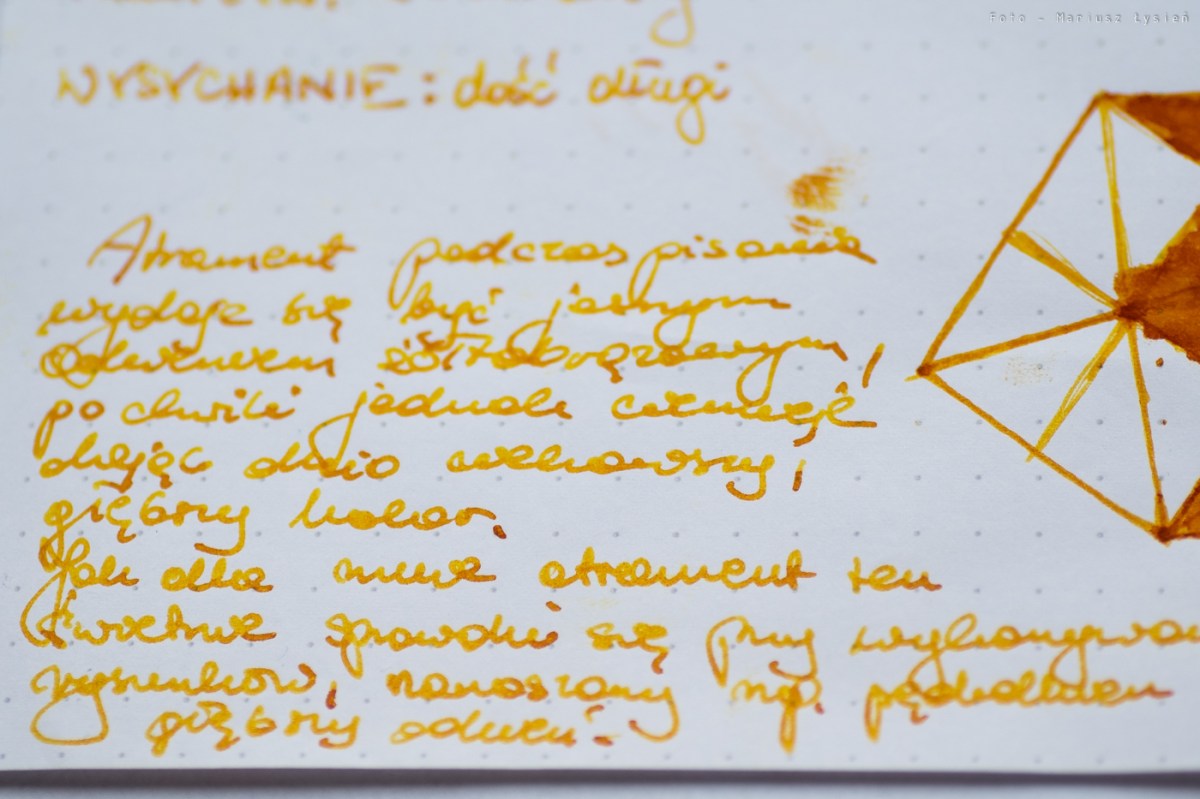 Foto - Mariusz Łysień
WYSYCHANIE: dość długi
Atrament podczas pisania
wydaje się być jasnym
odcieniem żółtobrązowym,
po chwili jednak ciemnieje
dając dużo ciekawszy,
głębszy kolor.
Jak dla mnie atrament ten
świetnie sprawdzi się przy wykonywa
rysunków, nanoszony np. pędzelkiem
głębszy odcień.